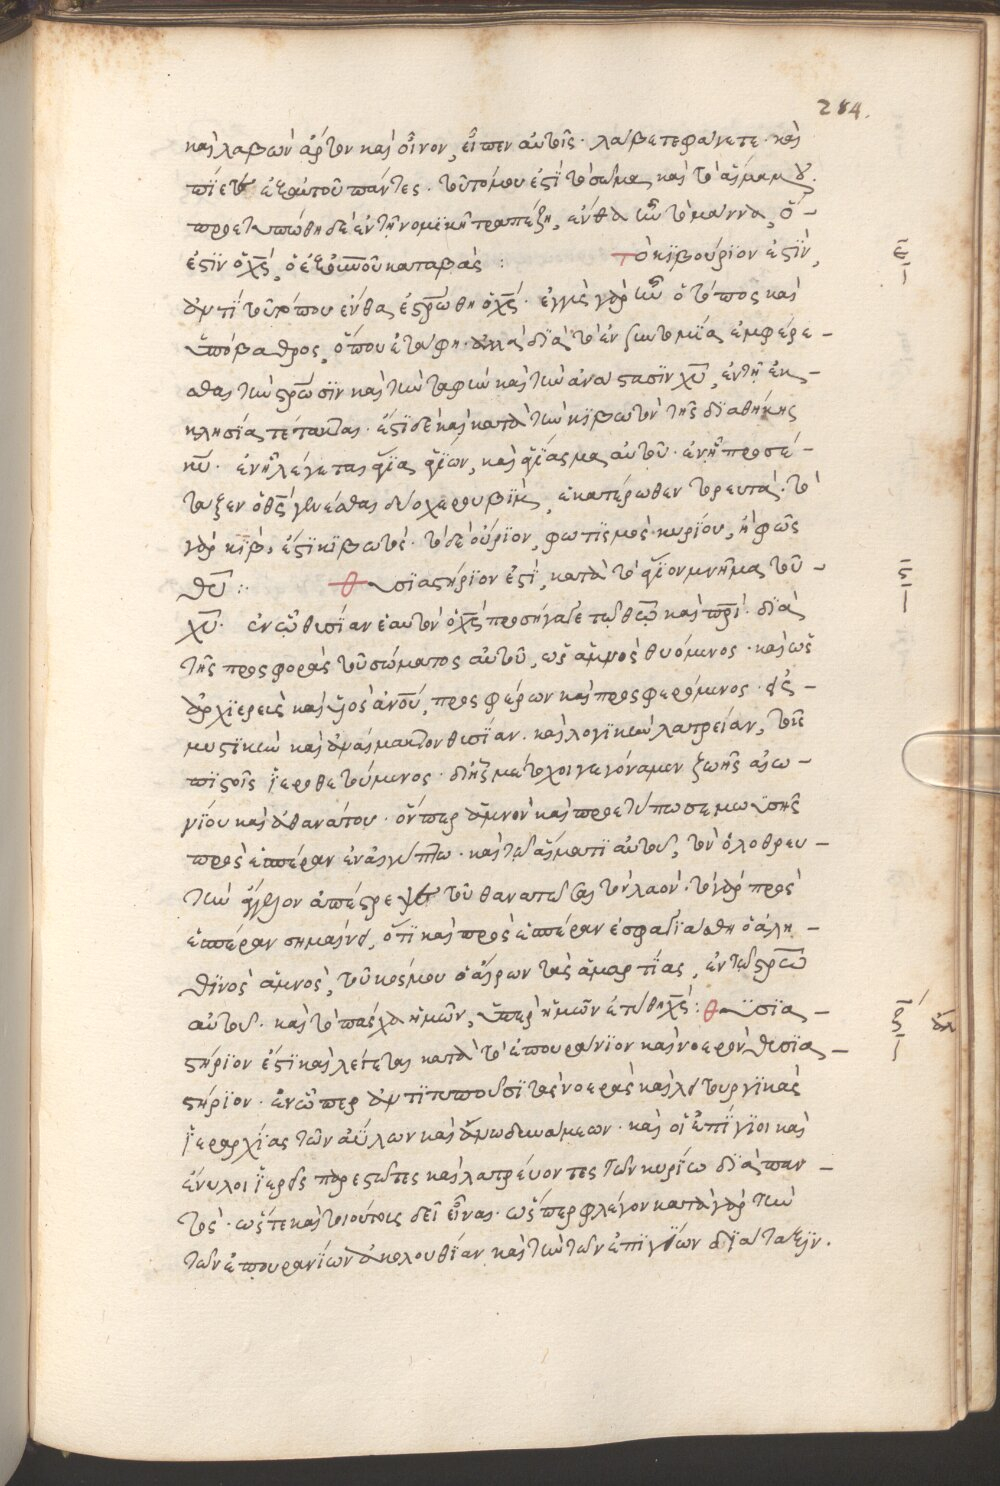 284.
καὶ λαβὼν ἄρτον καὶ οἶνον, εἶπεν αὐτοῖς· λάβετε φάγετε· καὶ
πίετε ἐξ αὐτοῦ πάντες· τοῦτό μου ἐστὶ τὸ σῶμα, καὶ τὸ αἷμα μου.
προετυπώθη δὲ ἐν τῇ νομϊκῇ τραπέζῃ, ἔνθα ἦν τὸ μάννα, ὅ-
ἐστὶν ὁ χς̅, ὁ ἐξ οὐνοῦ καταβάς : Τὸ κϊβούρϊον ἐστὶν,
ε̅
ἀντὶ τοῦ τόπου ἔνθα ἐσρ̅ώθη ὁ χς̅· ἐγγὺς γὰρ ἦν ὁ τόπος καὶ
ὑπόβαθρος, ὅπου ἐτάφη· ἀλλὰ δϊὰ τὸ ἐν συντομίᾳ ἐμφέρε-
σθαι τὴν σρ̅ωσϊν καὶ τὴν ταφὴν καὶ τὴν ἀνάστασϊν χυ̅, ἐν τῇ ἐκ-
κλησίᾳ τέτακται· ἔστϊ δὲ καὶ κατὰ τὴν κϊβωτὸν τῆς δϊαθήκης
κυ̅· ἐν ᾗ λέγεται ἅγϊα ἁγϊων, καὶ ἁγίασμα αὐτοῦ· ἐν ᾗ προσέ-
ταξεν ὁ θς̅ γενέσθαι δύο χερουβϊμ, ἑκατέρωθεν τορευτά· τὸ
γὰρ κϊβ, ἐστϊ κϊβωτός· τὸ δὲ οὔριον, φωτισμὸς κυρίου, ἢ φῶς
θυ̅ :· Θυσϊαστήρϊον ἐστὶ, κατὰ τὸ ἅγϊον μνῆμα τοῦ-
ς̅
χυ̅· ἐν ᾧ θυσίαν ἑαυτὸν ὁ χς̅ προσήγαγε τῷ θεῷ καὶ πρι̅· δϊὰ
τῆς προσφορᾶς τοῦ σώματος αὐτοῦ, ὡς ἀμνὸς θυόμενος· καὶ ὡς
ἀρχϊερεὺς καὶ υἱὸς ἀνου̅, προσφέρων καὶ προσφερόμενος· εἰς-
μυστϊκὴν καὶ ἀναίμακτον θυσϊαν· καὶ λογικὴν λατρείαν, τοῖς
πϊστοῖς ἱεροθετούμενος· δι' ἧς μέτοχοι γεγόναμεν ζωῆς αἰω-
νίου καὶ ἀθανάτου· ὅνπερ ἀμνὸν καὶ προετύπωσε μωυσῆς
πρὸς ἑσπέραν ἐν αἰγύπτω· καὶ τῷ αἵματϊ αὐτοῦ, τὸν ὀλοθρευ-
τὴν ἄγγελον ἀπέστρεψε τοῦ θανατῶσαι τὸν λαόν· τὸ γὰρ πρὸς
ἑσπέραν σημαίνει, ὅτϊ καὶ πρὸς ἑσπέραν ἐσφαγϊάσθη ὁ ἀλη-
θϊνὸς ἀμνὸς, τοῦ κόσμου ὁ αἴρων τὰς ἁμαρτϊας, ἐν τῷ σρ̅ῶ
αὐτοῦ· καὶ τὸ πάσχα ἡμῶν, ὑπὲρ ἡμῶν ἐτύθη χς̅ : Θυσϊα-
ζ̅
στήρϊον ἐστὶ καὶ λέγεται κατὰ τὸ ἐπουράνϊον καὶ νοερὸν θυσϊα-
στήρϊον· ἐν ᾧπερ ἀντϊτυποῦσϊ τὰς νοερὰς καὶ λειτουργϊκὰς
ἱεραρχίας τῶν ἀΰλων καὶ ἄνω δυνάμεων· καὶ οἱ ἐπίγϊοι καὶ
ἔνυλοι ἱερεῖς παρεστῶτες καὶ λατρεύοντες τῶν κυρίω δϊὰ παν-
τός· ὥστε καὶ τοιούτοις δεῖ εἶναι· ὥσπερ φλέγον κατὰ γὰρ τὴν
τῶν ἐπουρανίων ἀκολουθίαν καὶ τὴν τῶν ἐπϊγϊων δϊάταξιν.